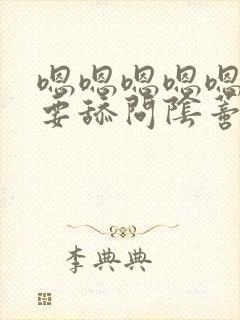 嗯嗯嗯嗯嗯
要舔阴陰蒂
李典典